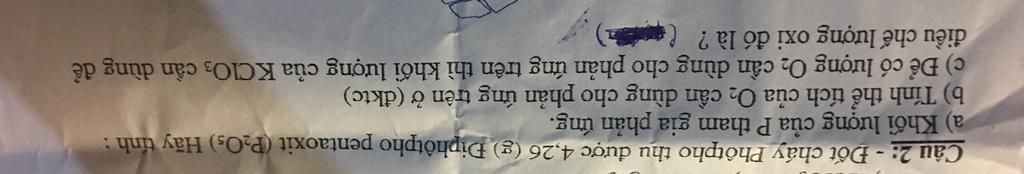 Câu 2: - Đốt cháy Phôtpho thu được 4,26 (g) Điphôtpho pentaoxit (P₂O₅) Hãy tính :
a) Khối lượng của P tham gia phản ứng.
b) Tính thể tích của O₂ cần dùng cho phản ứng trên ở (đktc)
c) Để có lượng O₂ cần dùng cho phản ứng trên thì khối lượng của KClO₃ cần dùng để
điều chế lượng oxi đó là ?